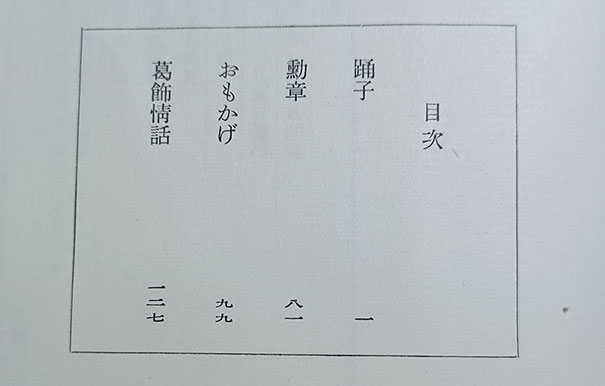 目次
踊子 一
勲章 八一
おもかげ 九九
葛飾情話 一二七